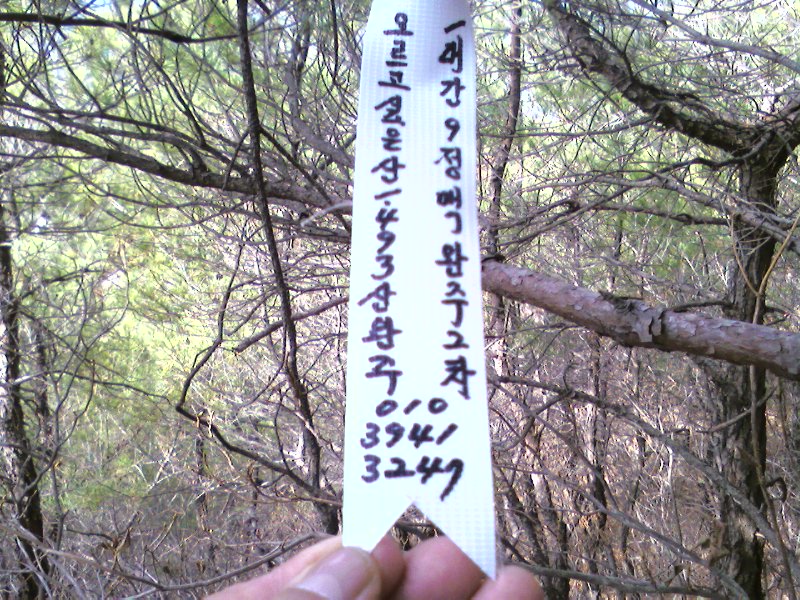 일대간9정맥완주2차
오르고싶은산1.493산완주
010
3941
3247